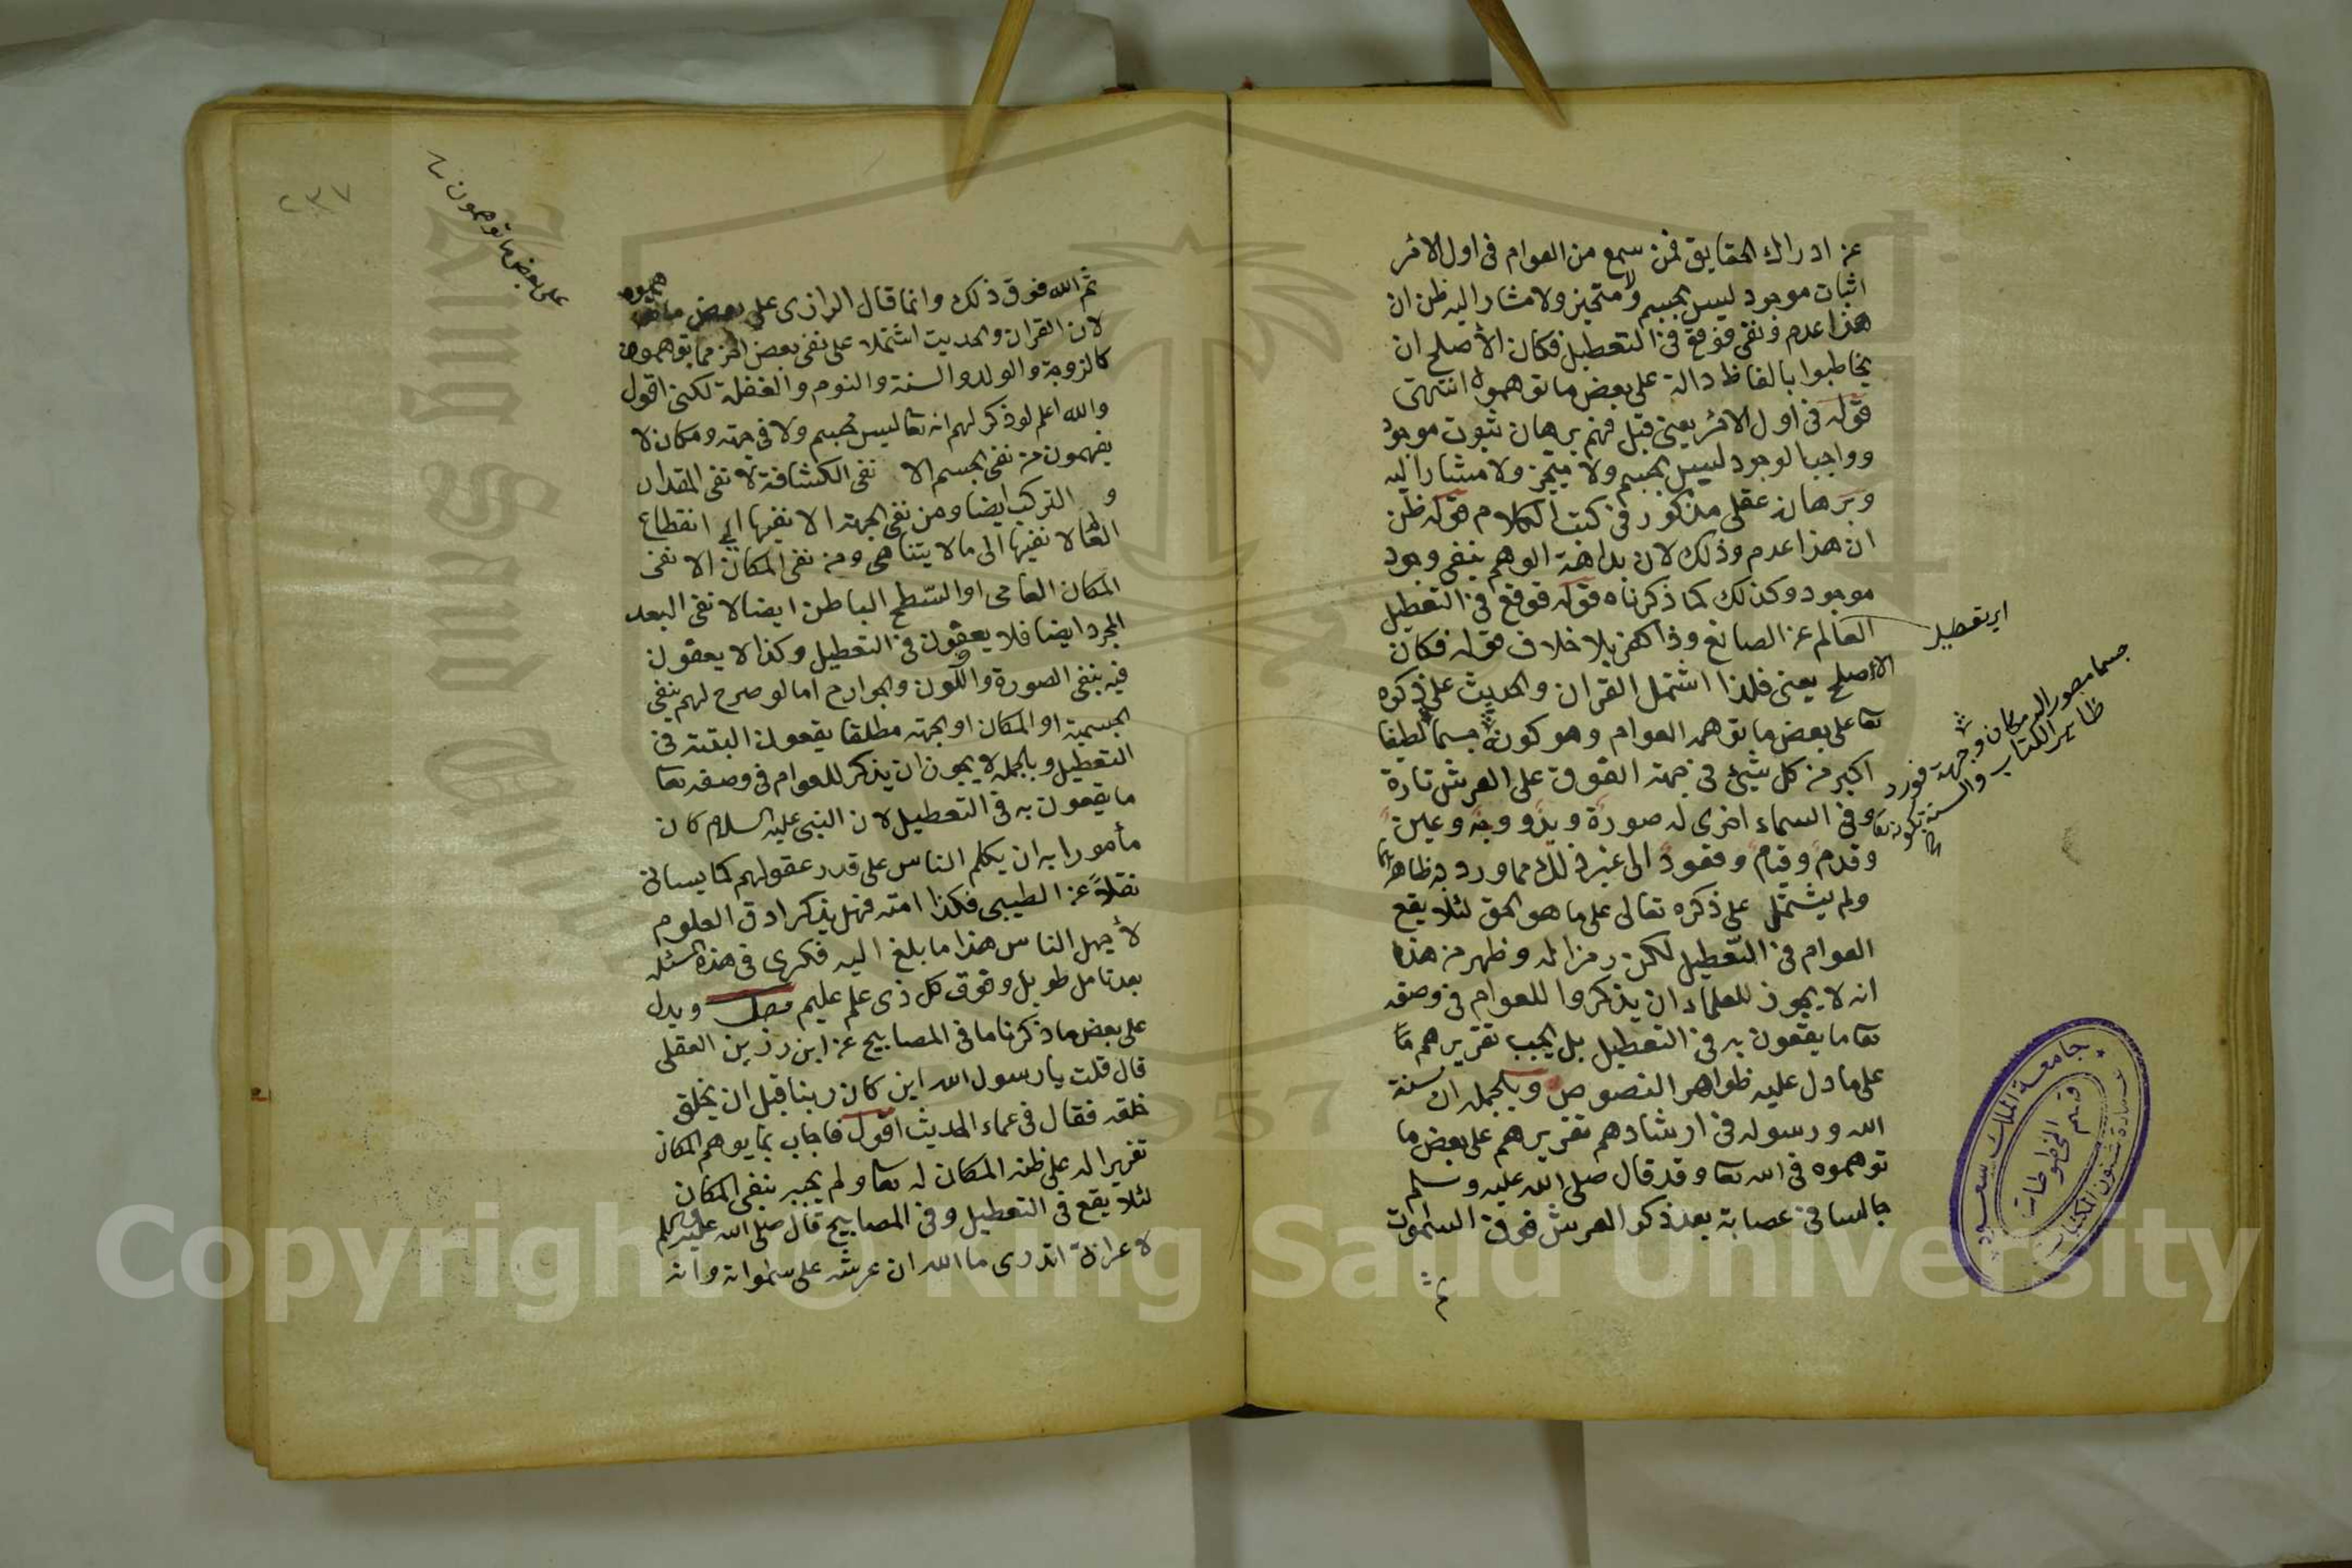 عن ادراك الحقايق فمن سمع من العوام فى اول الامر
اثبات موجود ليس بجسم ولا متحيز ولا مشار اليه ظن ان
هذا عدم ونفى فوقع فى التعطيل فكان الأصلح ان
يخاطبوا بالفاظ دالة على بعض ما توهموه انتهى
قوله فى اول الامر يعنى قبل فهم برهان ثبوت موجود
وواجب الوجود ليس بجسم ولا متحيز ولا مشارا اليه
وبرهانه عقلى مذكور فى كتب الكلام قوله ظن
ان هذا عدم وذلك لان بداهة الوهم ينفى وجود
موجود وكذلك كما ذكرناه قوله فوقع فى التعطيل
العالم عن الصانع وذا كفر بلا خلاف قوله فكان
الأصلح يعنى فلذا اشتمل القران والحديث على ذكره
تعا على بعض ما توهمه العوام وهو كونه جسما لطيفا
اكبر من كل شئ فى جهة الفوق على العرش تارة
وفى السماء اخرى له صورة ويد ووجه وعين
وقدم وقيام وقعود الى غير ذلك مما ورد به ظاهر
ولم يشتمل على ذكره تعالى على ما هو الحق لئلا يقع
العوام فى التعطيل لكن رمزا له وظهر من هذا
انه لا يجوز للعلماء ان يذكروا للعوام فى وصفه
تعا ما يقعون به فى التعطيل بل يجب تقريرهم
على ما دل عليه ظواهر النصوص وبالجملة ان سنة
الله ورسوله فى ارشادهم تقريرهم على بعض ما
توهموه فى الله تعا وقد قال صلى الله عليه وسلم
جالسا فى عصابة بعد ذكر العرش فوق السموات
ثم
اى تعطيل
جسما مصورا له مكان وجهة فورد
ظاهر الكتاب والسنة بكونه تعا
جامعة الملك سعود
قسم المخطوطات
عمادة شئون المكتبات
٢٣٧
على بعض ما توهمون
ثم الله فوق ذلك وانما قال الرازى على بعض ما
لان القران والحديث اشتملا على نفى بعض اخر مما توهموه
كالزوجة والولد والسنة والنوم والغفلة لكنى اقول
والله اعلم لو ذكر لهم انه تعا ليس بجسم ولا فى جهة ومكان لا
يفهمون من نفى الجسم الا نفى الكثافة لا نفى المقدار
و التركب ايضا ومن نفى الجهة الا نفيها الى انقطاع
العالم لا نفيها الى ما لا يتناهى ومن نفى المكان الا نفى
المكان العامى او السطح الباطن ايضا لا نفى البعد
المجرد ايضا فلا يعقون فى التعطيل وكذا لا يعقون
فيه بنفى الصورة واللون والجوارح اما لو صرح لهم بنفى
الجسمية او المكان او الجهة مطلقا يقعون البتة فى
التعطيل وبالجملة لا يجوز ان يذكر للعوام فى وصفه تعا
ما يقعون به فى التعطيل لان النبى عليه السلام كان
مأمورا به ان يكلم الناس على قدر عقولهم كما يساتى
نقلا عن الطيبى فكذا امته فهل يذكر ادق العلوم
لأجهل الناس هذا ما بلغ اليه فكرى فى هذه المسئلة
بعد تامل طويل وفوق كل ذى علم عليم فصل ويدل
على بعض ما ذكرنا ما فى المصابيح عن ابن رزين العقلى
قال قلت يا رسول الله اين كان ربنا قبل ان يخلق
خلقه فقال فى عماء الحديث اقول فاجاب بما يوهم المكان
تقريرا له على ظنه المكان له تعا ولم يجبر بنفى المكان
لئلا يقع فى التعطيل وفى المصابيح قال صلى الله عليه وسلم
لا عرابى اتدرى ما الله ان عرشه على سمواته وانه
Copyright © King Saud University
1957